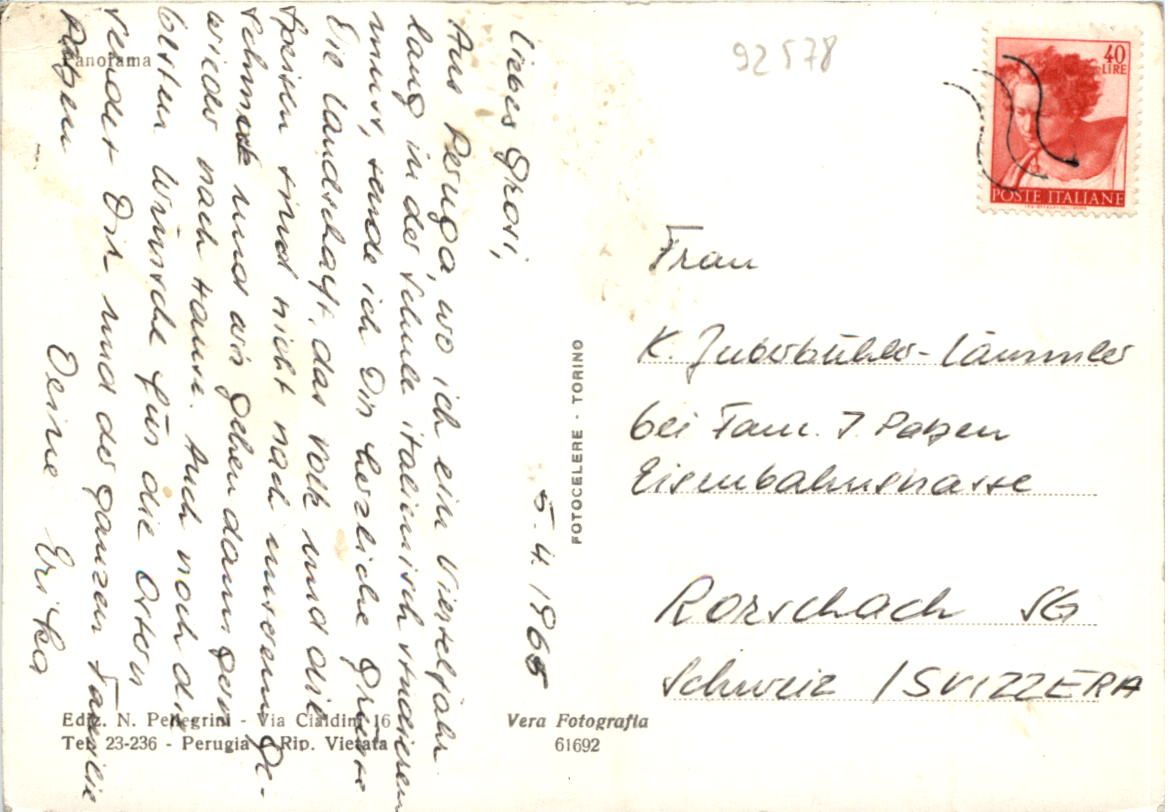 Panorama
92578
40
LIRE
POSTE ITALIANE
5. 4. 1965
Liebes Grosi,
Aus Perugia, wo ich ein Vierteljahr
lang in der Schule italienisch studieren
muss, sende ich Dir herzliche Grüsse
Die Landschaft, das Volk und die
Speisen sind nicht nach unserem Ge-
schmack und wir gehen dann gern
wieder nach Hause. Auch noch die
besten Wünsche für die Ostern
sendet Dir und der ganzen Familie
Patzen
Deine Erika
Frau
K. Zuberbühler-Lämmler
bei Fam. J. Patzen
Eisenbahnstrasse
Rorschach SG
Schweiz / SVIZZERA
FOTOCELERE - TORINO
Ediz. N. Pellegrini - Via Cialdini 16
Tel. 23-236 - Perugia - Rip. Vietata
Vera Fotografia
61692